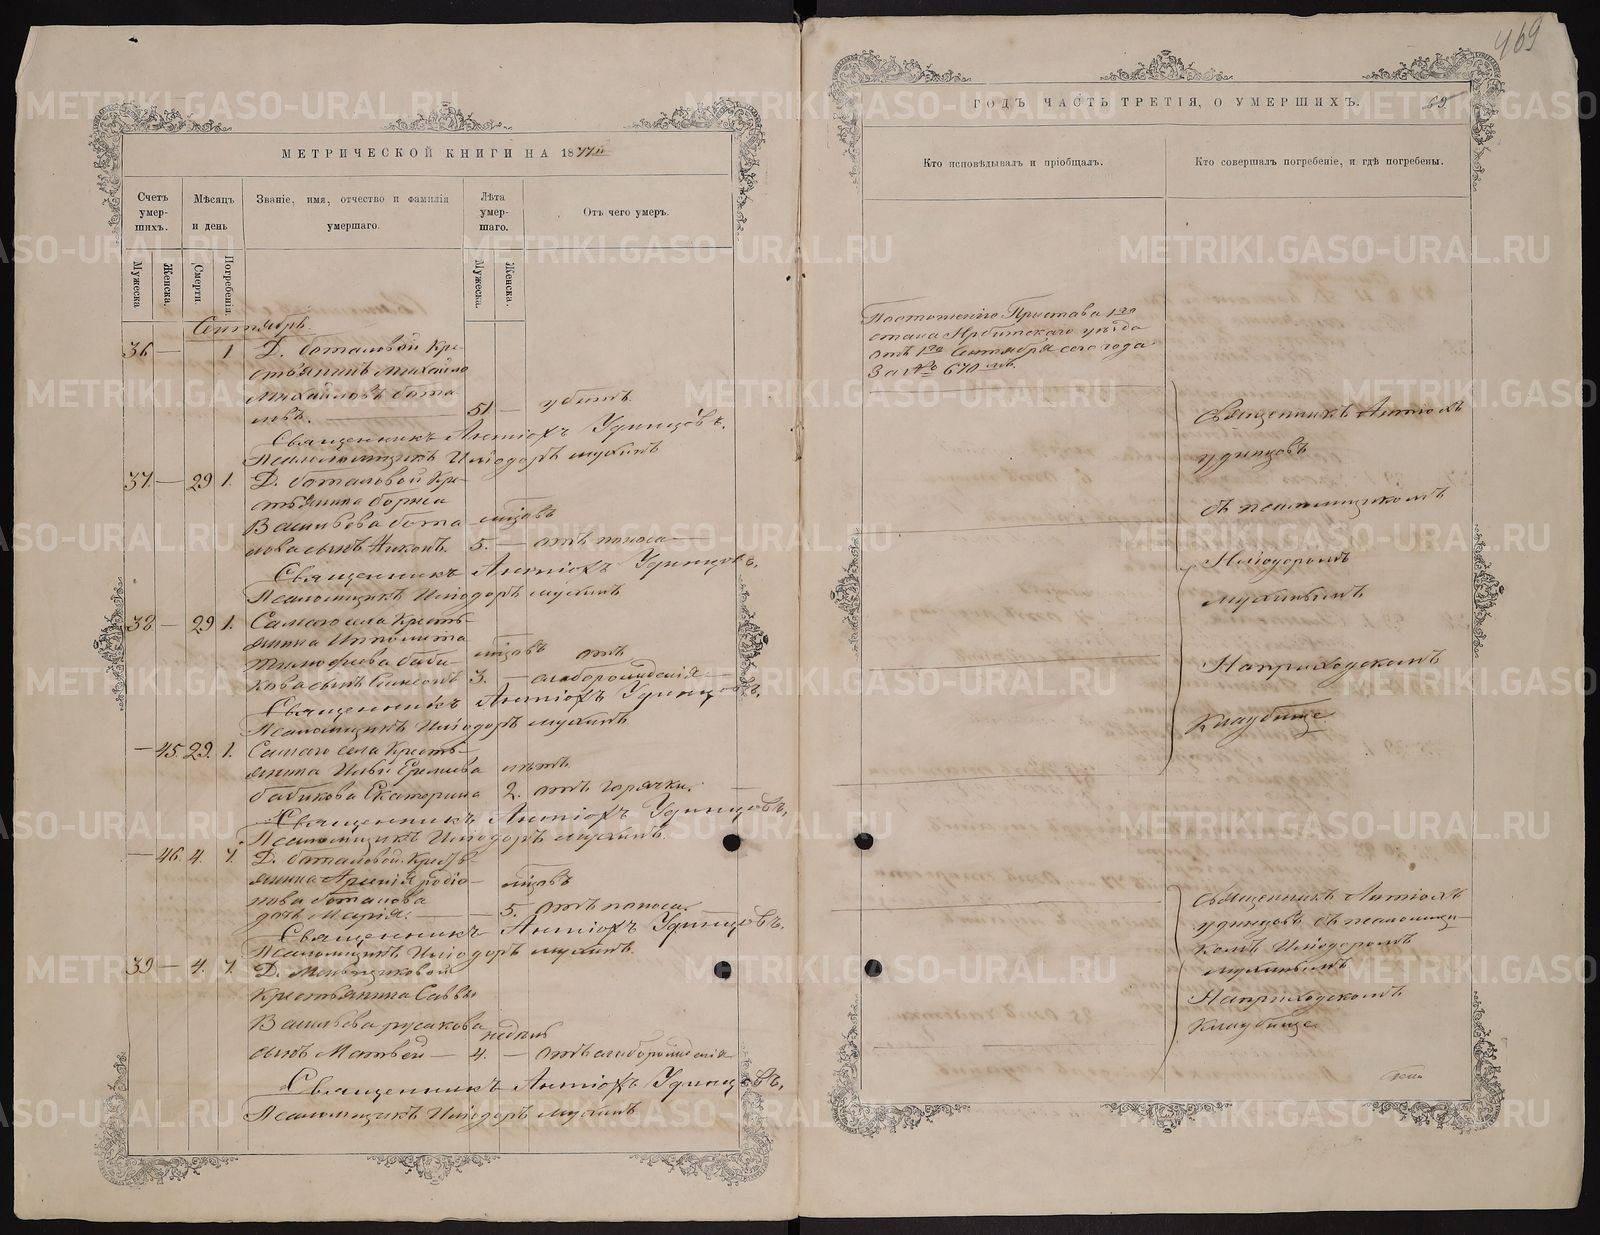 МЕТРИЧЕСКОЙ КНИГИ НА 1877й
Счетъ умер-шихъ.
Мѣсяцъ и день
Званіе, имя, отчество и фамилія умершаго.
Лѣта умер-шаго.
Отъ чего умеръ.
Мужеска
Женска.
Смерти.
Погребенія.
Мужеска.
Женска.
Сентябрь.
36 — 1 Д. боталовой Кре-
стьянинъ Михайло
Михайловъ бота
ловъ. 51 — убитъ
Священникъ Антіохъ Удинцовъ.
Псаломщикъ Иліодоръ мухинъ
37. — 29 1. Д. боталовой Кре-
стьянина бориса
Васильева бота мѣсяцъ
лова сынъ Никонъ. 5. — отъ поноса
Священникъ Антіохъ Удинцовъ.
Псаломщикъ Иліодоръ мухинъ
38 — 29 1. Самаго села Кресть-
янина Ипполита
тимофеева баби- мѣсяцъ отъ
кова сынъ Симеонъ 3. — слаборожденія
Священникъ Антіохъ Удинцовъ.
Псаломщикъ Иліодоръ мухинъ
— 45. 29. 1. Самаго села Кресть-
янина Ильи Еремѣева лѣтъ
бабикова Екатерина 2. отъ горячки.
Священникъ Антіохъ Удинцовъ.
Псаломщикъ Иліодоръ мухинъ.
— 46. 4. 7. Д. боталовой Кресть
янина Арсенія родіо- мѣсяцъ
нова боталова
дочь Марія. 5. отъ поноса.
Священникъ Антіохъ Удинцовъ.
Псаломщикъ Иліодоръ мухинъ.
39 — 4. 7. Д. Меньщиковой
Крестьянина Саввы
Васильева русакова недѣль
сынъ Матвей — 4. — отъ слаборожденія
Священникъ Антіохъ Удинцовъ.
Псаломщикъ Иліодоръ мухинъ
469
ГОДЪ ЧАСТЬ ТРЕТІЯ, О УМЕРШИХЪ.
69
Кто исповѣдывалъ и пріобщалъ.
Кто совершалъ погребеніе, и гдѣ погребены.
Поотношенію Пристава 1го
стана Ирбитскаго уѣзда
отъ 1го Сентября сего года
За № 670мъ.
Священникъ Антіохъ
Удинцовъ
Съ псаломщикомъ
Иліодоромъ
мухинымъ
Наприходскомъ
Кладбище
Священникъ Антіохъ
Удинцовъ Съ псаломщи-
комъ Иліодоромъ
мухинымъ
Наприходскомъ
Кладбище
METRIKI.GASO-URAL.RU